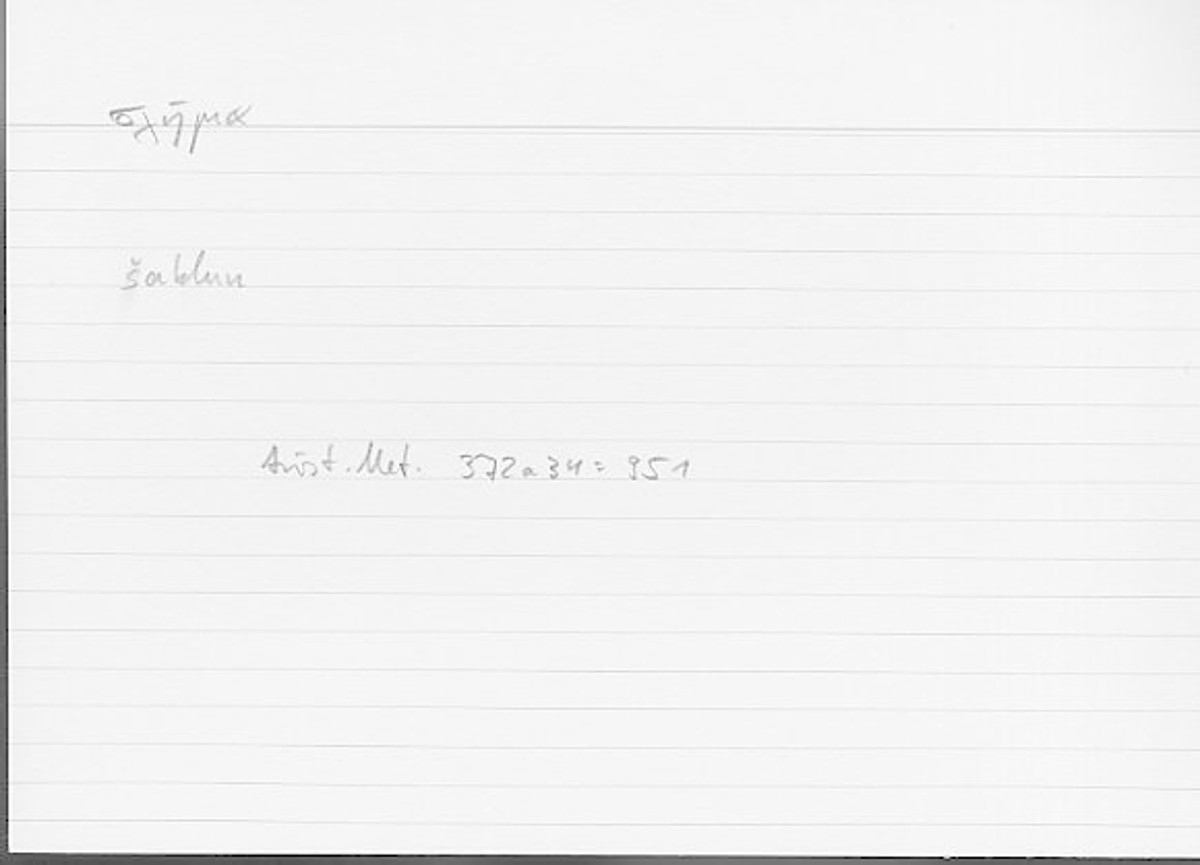 σχῆμα
šaklun
Arist. Met. 372a34 = 951